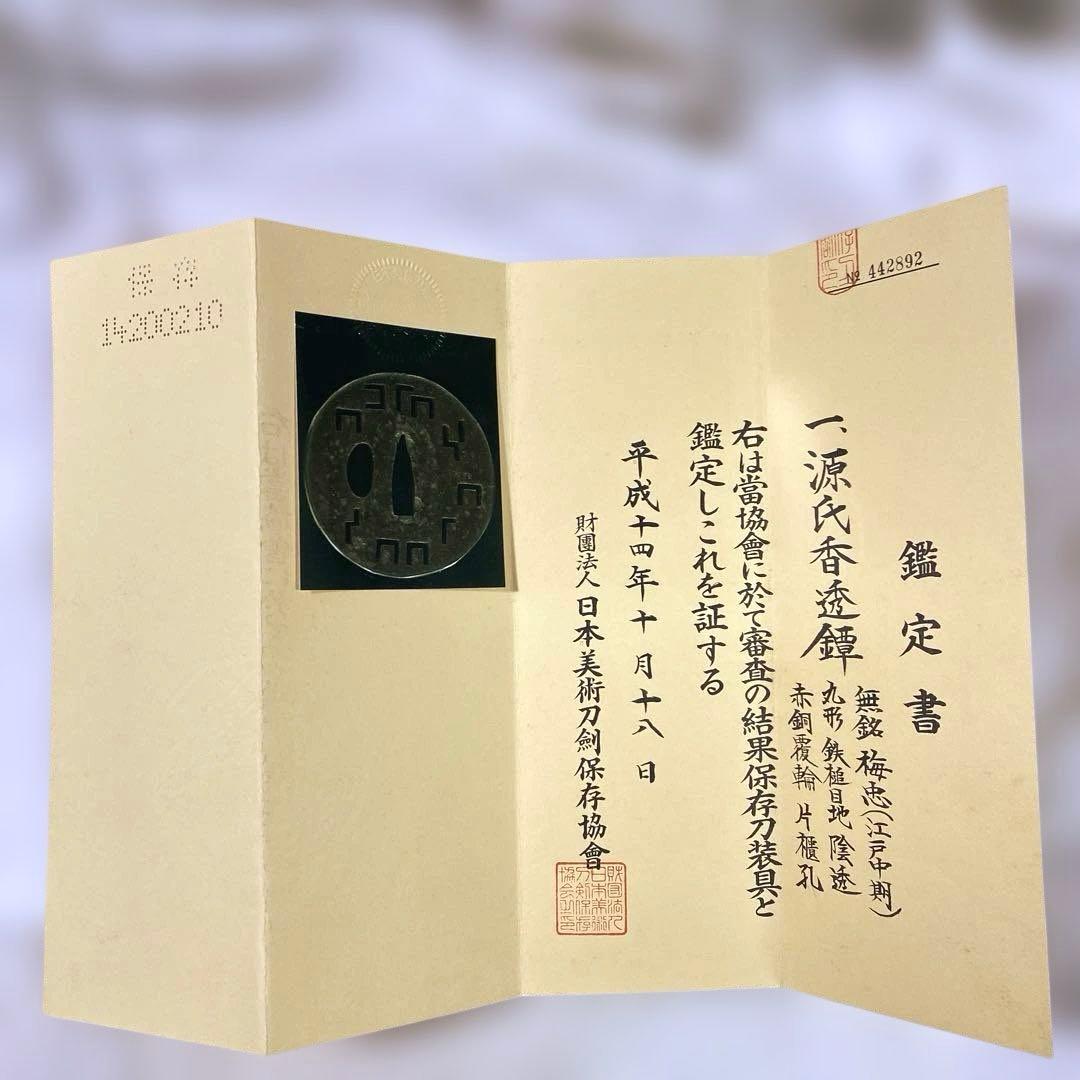 № 442892
鑑定書
一、源氏香透鐔
無銘 梅忠(江戸中期)
丸形 鉄槌目地 陰透
赤銅覆輪 片櫃孔
右は當協會に於て審査の結果保存刀装具と
鑑定しこれを証する
平成十四年十月十八日
財團法人日本美術刀劍保存協會
財団法人日本美術刀剣保存協会之印
保存
14200210